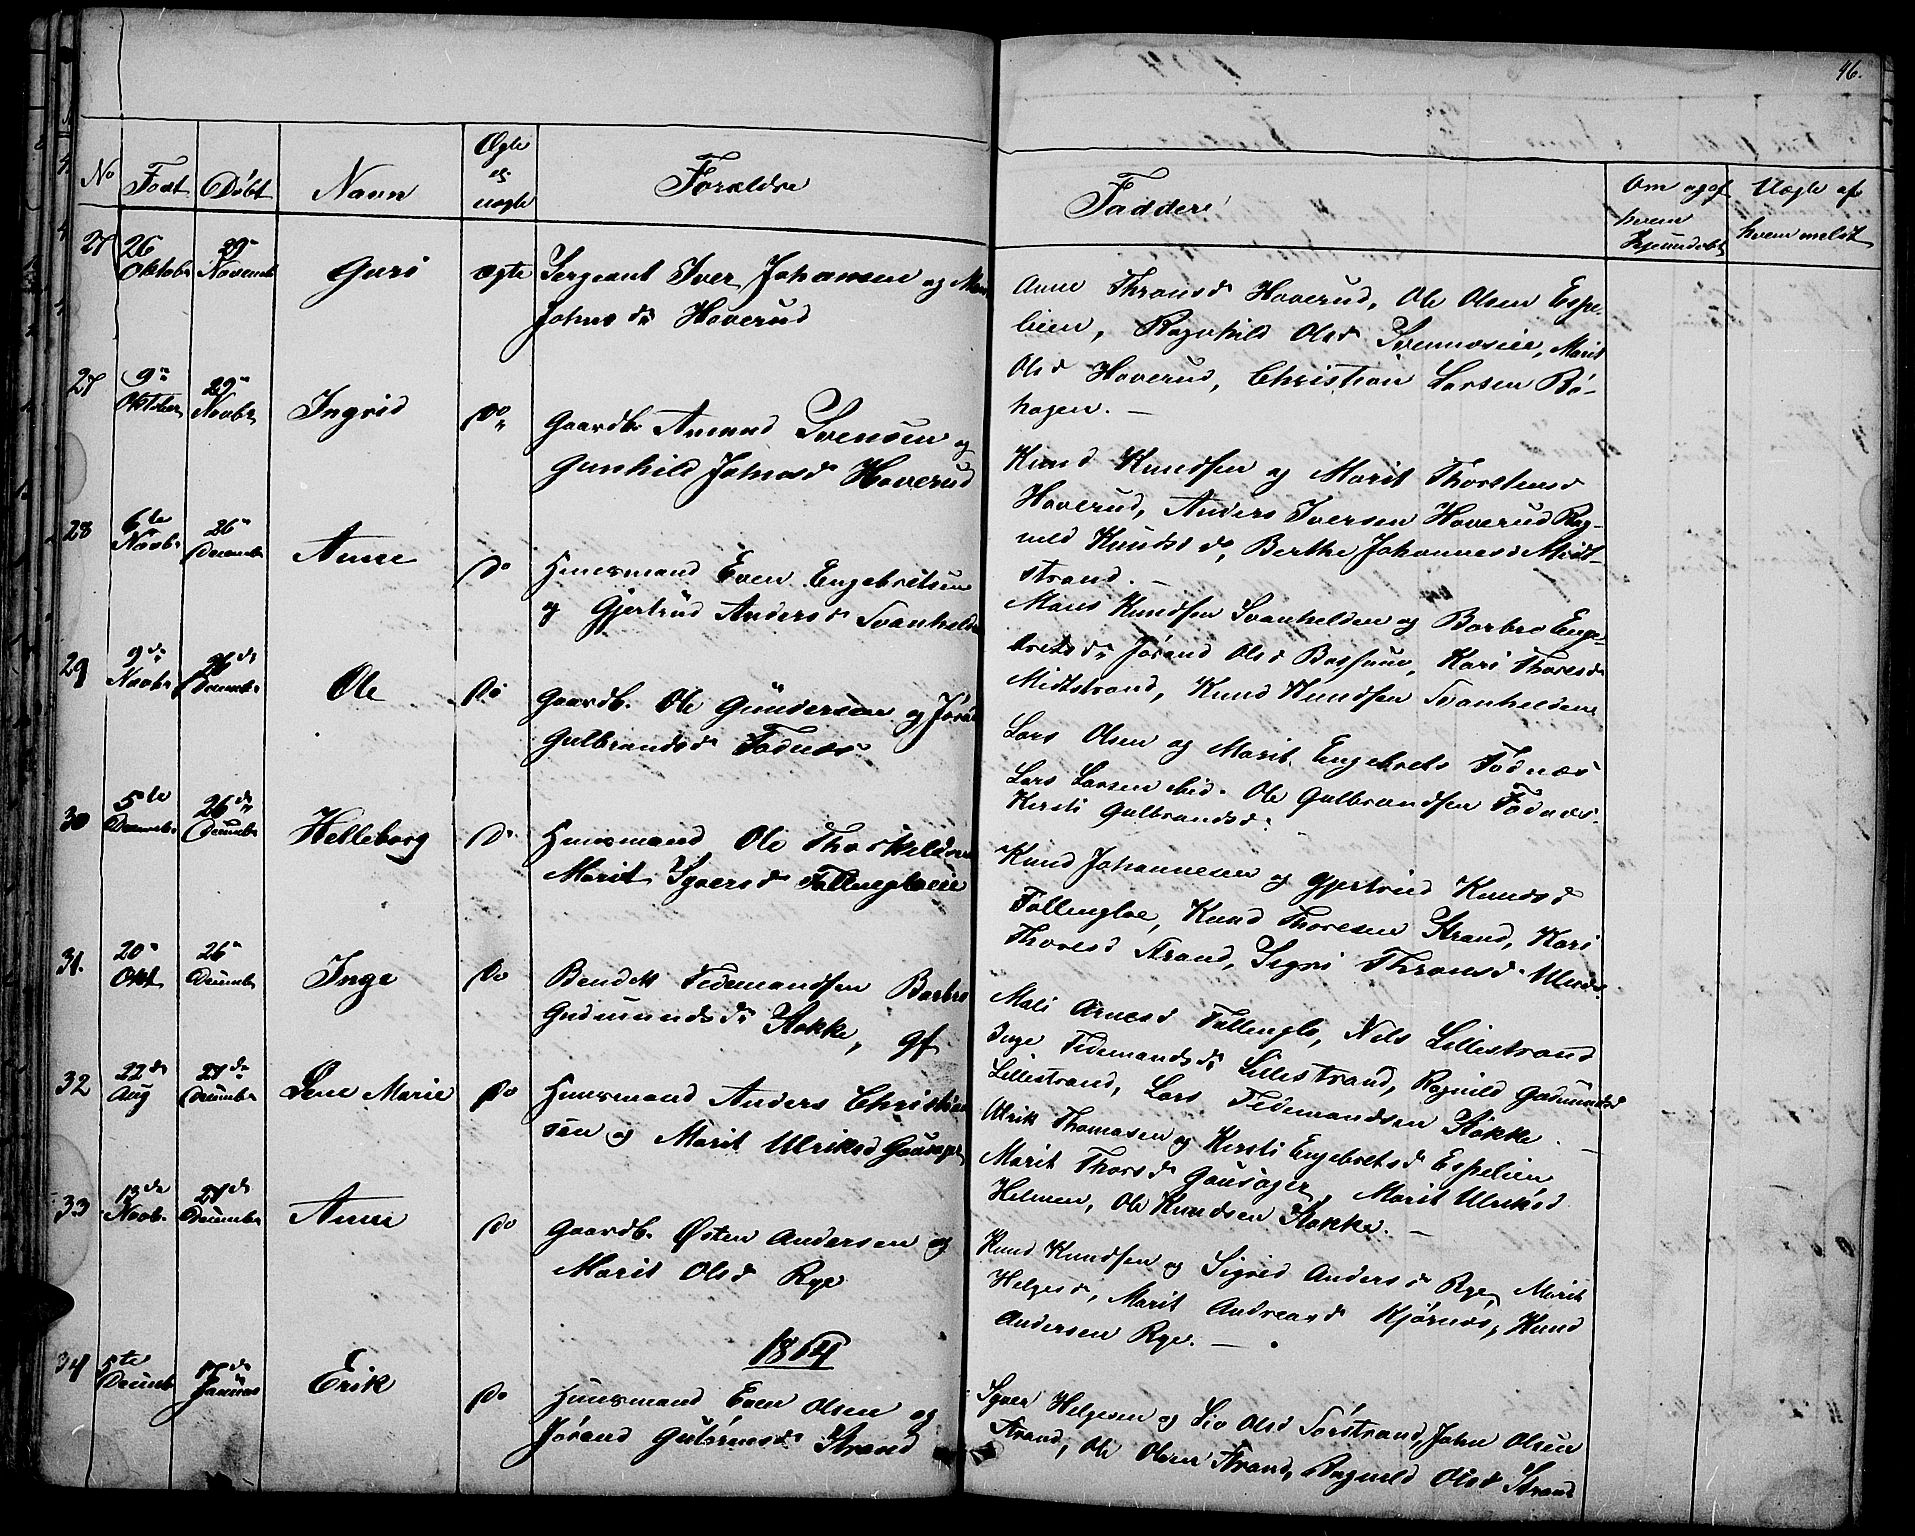 46.
No
Født
Døbt
Navn
Ægte
og
uægte
Forældre
Faddere
Om og af
hvem
hjemmedøbt
Uægte af
hvem meldt
27
26
Oktobr
29
Novemb
Guri
ægte
Sergeant Iver Johansen og
Johns dr Hoverud
Anne Thronsd Hoverud, Ole Olsen Espe-
lien, Ragnhild Olsd Svenneseie, Marit
Olsd Hoverud, Christian Larsen Bø-
hagen. —
27
9de
Oktober
29
Novbr
Ingrid
Do
Gaardb. Amund Svensen og
Gunhild Johnsd Hoverud
Knud Knudsen og Marit Thorstensd
Hoverud, Anders Iversen Hoverud Rag-
nild Knudsd, Berthe Johannesd Midt-
strand. —
28
6te
Novbr
26
Decembr
Anne
Do
Huusmand Even Engebretsen
og Gjertrud Andersd Svanhelden
Mons Knudsen Svanhelden og Barbro Enge-
bretsdr Jørand Olsd Kari Thoresd
Midtstrand, Knud Knudsen Svanhelden
29
9de
Novbr
26de
Decembr
Ole
Do
Gaardb. Ole Gundersen og
Gulbrandsd Fødnes
Lars Olsen og Marit Engebrets Fødnæs
Lars Larsen ibid. Ole Gulbrandsen Fødnæs.
Kersti Gulbrandsd.
30
5te
Decembr
26de
Decembr
Helleborg
Do
Huusmand Ole Thorkildsen
Marit Syversd Fallengloeie
Knud Johannesen og Gjertrud Knudsd
Fallengloe, Knud Thoresen Strand, Kari
Thoresd Strand, Sigri Thronsd
31.
20
Okt
26
Decembr
Inge
Do
Bendik Tedemandsen Barbro
Gudmundsdr Stokke, gf
Mali Arnesd Fallenglo, Nils Lillestrand
Inge Tedemandsdr Lillestrand, Ragnild Gudmundsd
Lillestrand, Lars Tedemandsen Stokke. —
32
22de
Aug
27de
Decembr
Lene Marie
Do
Huusmand Anders Christian
sen og Marit Ulriksd Gausager
Ulrik Thomasen og Kersti Engebretsd Espelien,
Marit Thorsd Gausager, Marit Ulriksd
Helmen, Ole Knudsen Stokke. —
33
13de
Novb.
27de
Decembr
Anne
Do
Gaardb. Østen Andersen og
Marit Olsd Rye
Knud Knudsen og Sigrid Andersd Rye, Marit
Helgesd, Marit Andreasd Kjørnes, Knud
Andersen Rye. —
1864
34
5te
Decemb
17de
Januar
Erik
Do
Huusmand Even Olsen og
Jørand Gutormsd Strand
Syver Helgesen og Siv Olsd Sørstrand, John Olsen
Strand, Ole Olsen Strand, Ragnild Olsd Strand